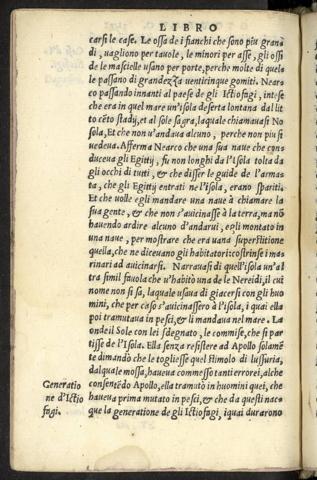 LIBRO
carsi le case. Le ossa de i fianchi che sono piu gran
di, uagliono per tauole, le minori per asse, gli ossi
de le mascelle usano per porte, perche molte di quel
le passano di grandezza uentirinque gomiti. Nearco
passando innanti al paese de gli Ictiofagi, intese
che era in quel mare un'isola deserta lontana dal lit
to cēto stadij, et al sole sagra, laquale chiamauasi No
sola, Et che non u'andaua alcuno, perche non piu si
uedeua. Afferma Nearco che una sua naue che con
duceua gli Egittij, fu non longhi da l'isola tolta da
gli occhi di tutti, & che disser le guide de l'arma
ta, che gli Egittij entrati ne l'isola, erano spariti.
Et che uolle egli mandare una naue à chiamare la
sua gente, & che non s'auicinasse à la terra, ma nō
hauendo ardire alcuno d'andarui, egli montato in
una naue, per mostrare che era uana superstitione
quella, che ne diceuano gli habitatori: costrinse i ma
rinari ad auicinarsi. Narrauasi di quell'isola un'al
tra simil fauola che u'habitò una de le Nereidi, il cui
nome non si sa, laquale usaua di giacersi con gli huo
mini, che per caso s'auicinassero à l'isola, i quai ella
poi tramutaua in pesci, & li mandaua nel mare. La
onde il Sole con lei sdegnato, le commise, che si par
tisse de l'Isola. Ella senza resistere ad Apollo solamē
te dimandò che le togliesse quel stimolo di lussuria,
dal quale mossa, haueua commesso tanti errori, alche
consentēdo Apollo, ella tramutò in huomini quei, che
haueua prima mutato in pesci, & che da questi nac
que la generatione de gli Ictiofagi, i quai durarono
Generatio
ne d'Ictio
fagi.